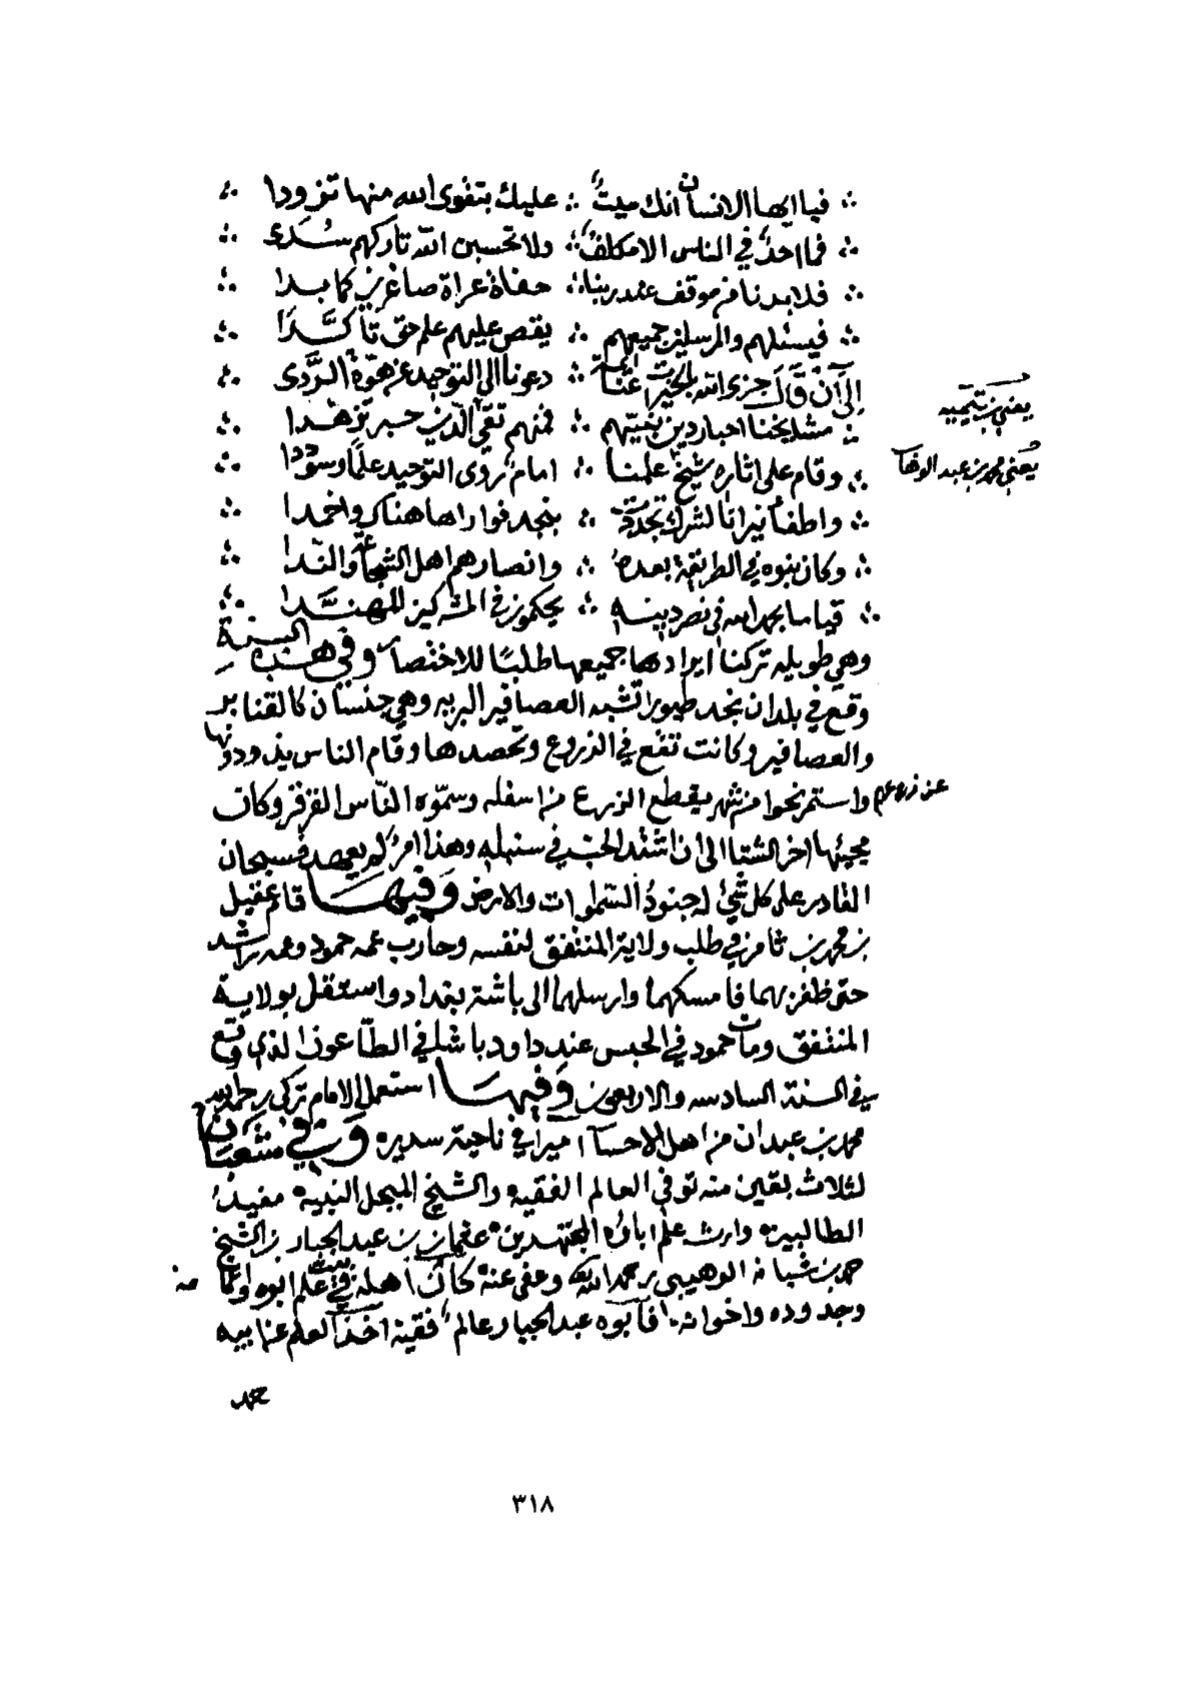 ∴ فيا ايها الانسان انك ميتٌ ∴ عليك بتقوى الله منها تزودا ∴
∴ فما احدٌ في الناس الا مكلفٌ ∴ ولا تحسبن الله تاركهم سُدَى ∴
∴ فلا بد نا من موقف عند ربنا ∴ حفاة عراة صاغرين كما بدا ∴
∴ فيسئلهم والمرسلين جميعهم ∴ يقص عليهم علم حق تأكَّدَا ∴
إلى أن قال جزى الله بالخيرات عنا ائمة ∴ دعونا الى التوحيد عن هوّة الرَّدى ∴
يعني بن تيميه
∴ مشايخنا احبار دين نبيّهم ∴ فمنهم تقي الدين حبر تزهّدا ∴
∴ وقام على اثاره شيخ علمنا ∴ امامٌ روى التوحيد علمًا وسوّددا ∴
يعني محمد بن عبد الوهاب
∴ واطفأ نيرانا لشرك تجددت ∴ بنجد فواراها هناك واخمدا ∴
∴ وكان بنوه في الطريقة بعده ∴ وانصارهم اهل الشجاعة والنّدا ∴
∴ قياما بحمد الله في نصر دينه ∴ يحكمون في المشركين المهنَّدا ∴
وهي طويله تركنا ايرادها جميعها طلبًا للاختصار وفي هذه السنة
وقع في بلدان نجد طيورا تشبه العصافير البريه وهي جنسان كالقنابر
والعصافير وكانت تقع في الزروع وتحصدها وقام الناس يذودونها
عن زروعهم واستمر نحوا من شهر يقطع الزرع من اسفله وسمّوه النّاس القرقر وكان
مجيئها اخر الشتا الى ان اشتد الحب في سنبله وهذا امرٌ لم يعهد فسبحان
القادر على كل شيئ له جنودُ السّموات والارض وفيها قام عقيل
بن محمد بن ثامر في طلب ولاية المنتفق لنفسه وحارب عمه حمود وعمه راشد
حتى ظفر بهما فامسكهما وارسلهما الى باشة بغداد واستقل بولاية
المنتفق ومات حمود في الحبس عند داود باشا في الطّاعون الذي وقع
في السنة السادسه والاربعين وفيها استعمل الامام تركي رحمه الله
محمد بن عبدان من اهل الاحسا اميرا في ناحية سدير وفي شعبان
لثلاث بقين منه توفي العالم الفقيه والشيخ المبجل النبيه مفيدُ
الطالبين وارث علم ابائه المجتهدين عثمان بن عبد الجبار بن الشيخ
حمد بن شبانه الوهيبي رحمه الله وعفى عنه كان اهله في بيت علم ابوه وعمّه
وجدوده واخوانه فأبوه عبد الجبار عالمٌ فقيه اخذ العلم عن ابيه
حمد
٣١٨